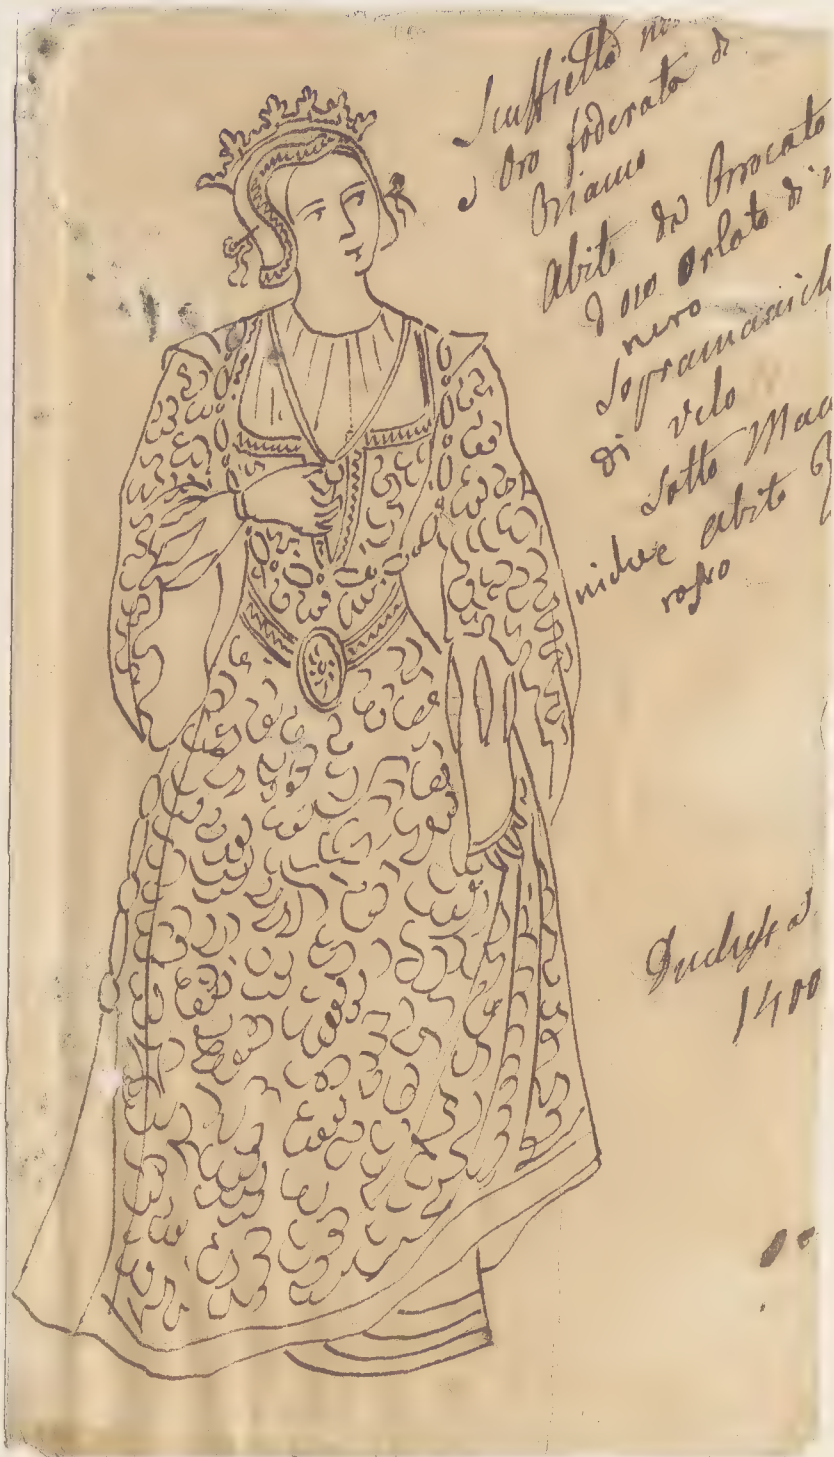 Scuffietta
e Oro foderata di
Bianco
Abito di Brocato
d'oro Orlato di
nero
Sopramanich
di velo
Sotto Man
niche e Abito
rosso
Duchessa
1400